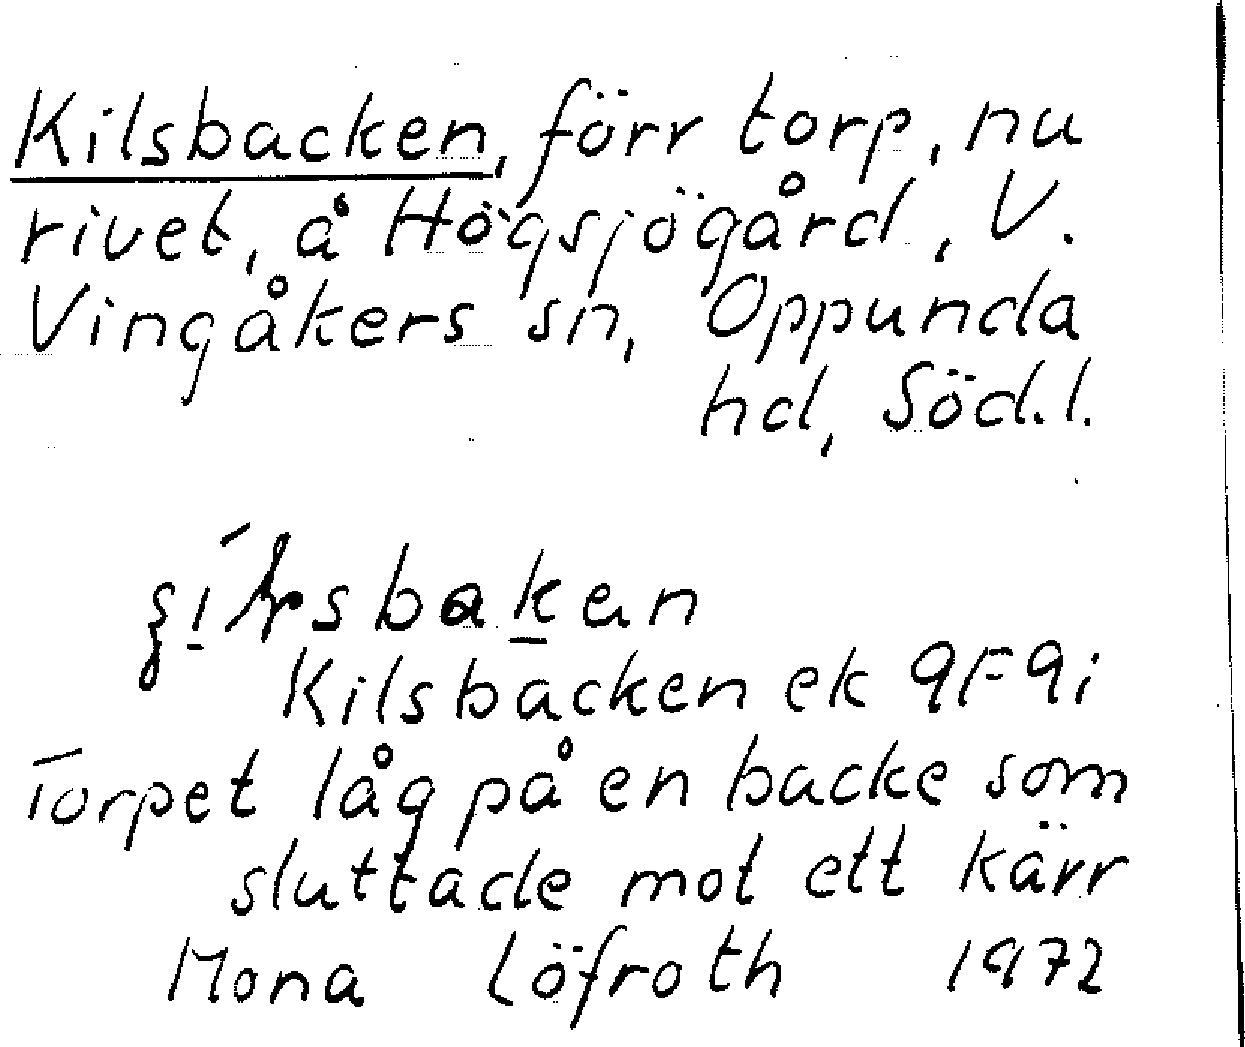 Kilsbacken, förr torp, nu
rivet, å Högsjögård, V.
Vingåkers sn, Oppunda
hd, Söd.l.
Kilsbacken ek 9F9i
Torpet låg på en backe som
sluttade mot ett kärr
Mona Löfroth 1972